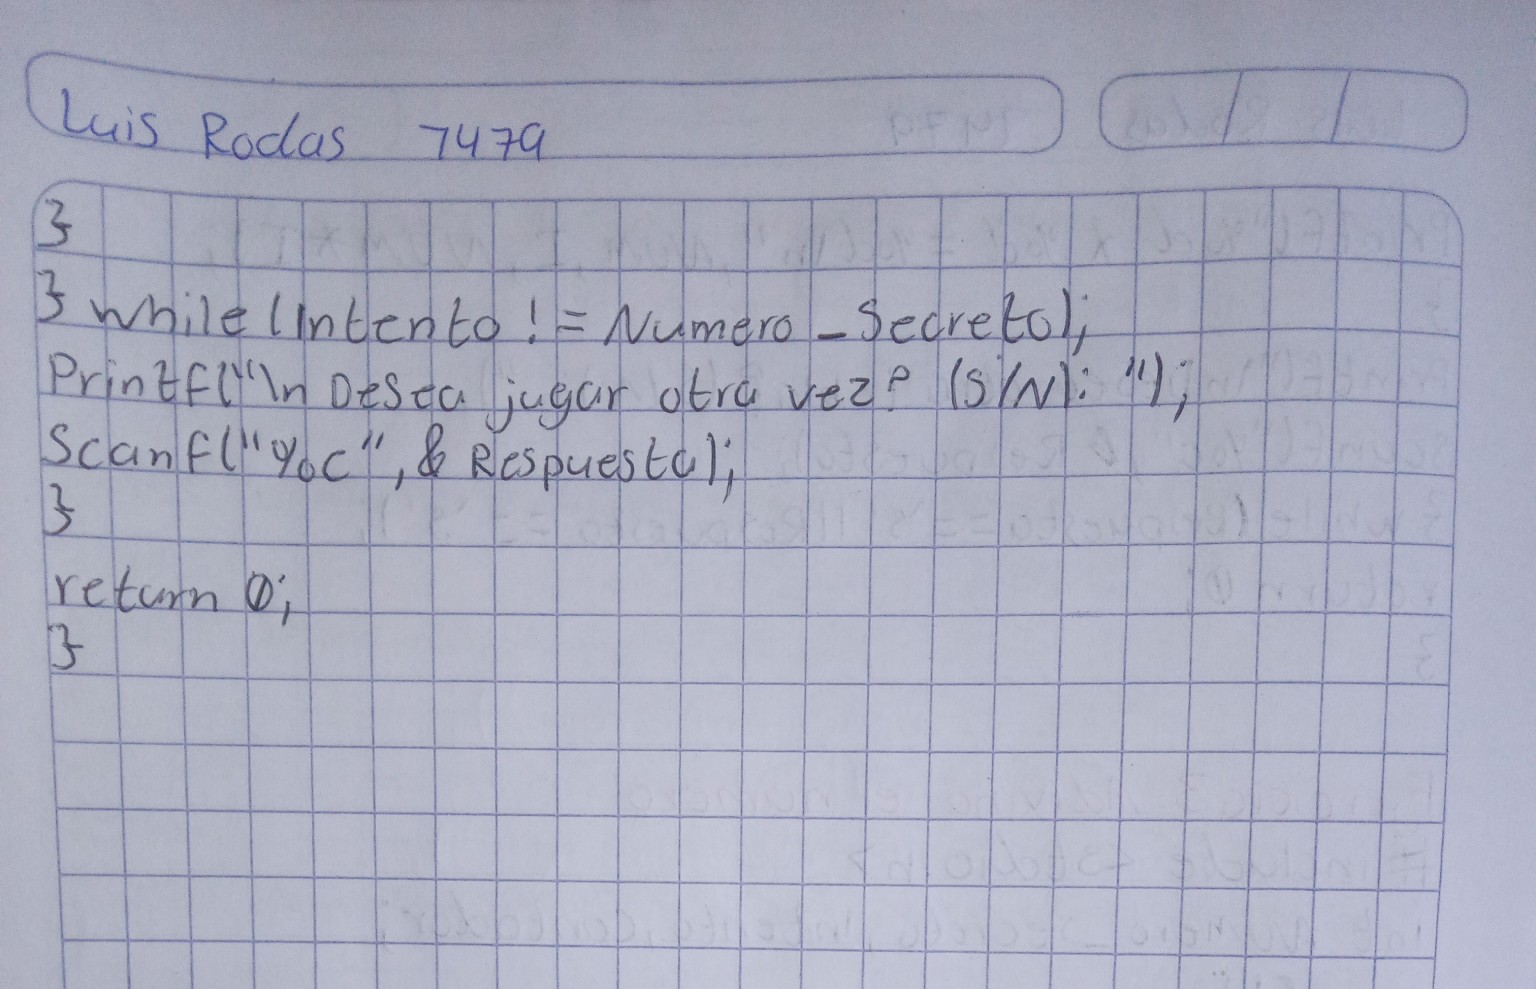 Luis Rodas 7479
}
} while (Intento != Numero_Secreto);
Printf("\n Desea jugar otra vez? (S/N): ");
Scanf("%c", & Respuesta);
}
return 0;
}